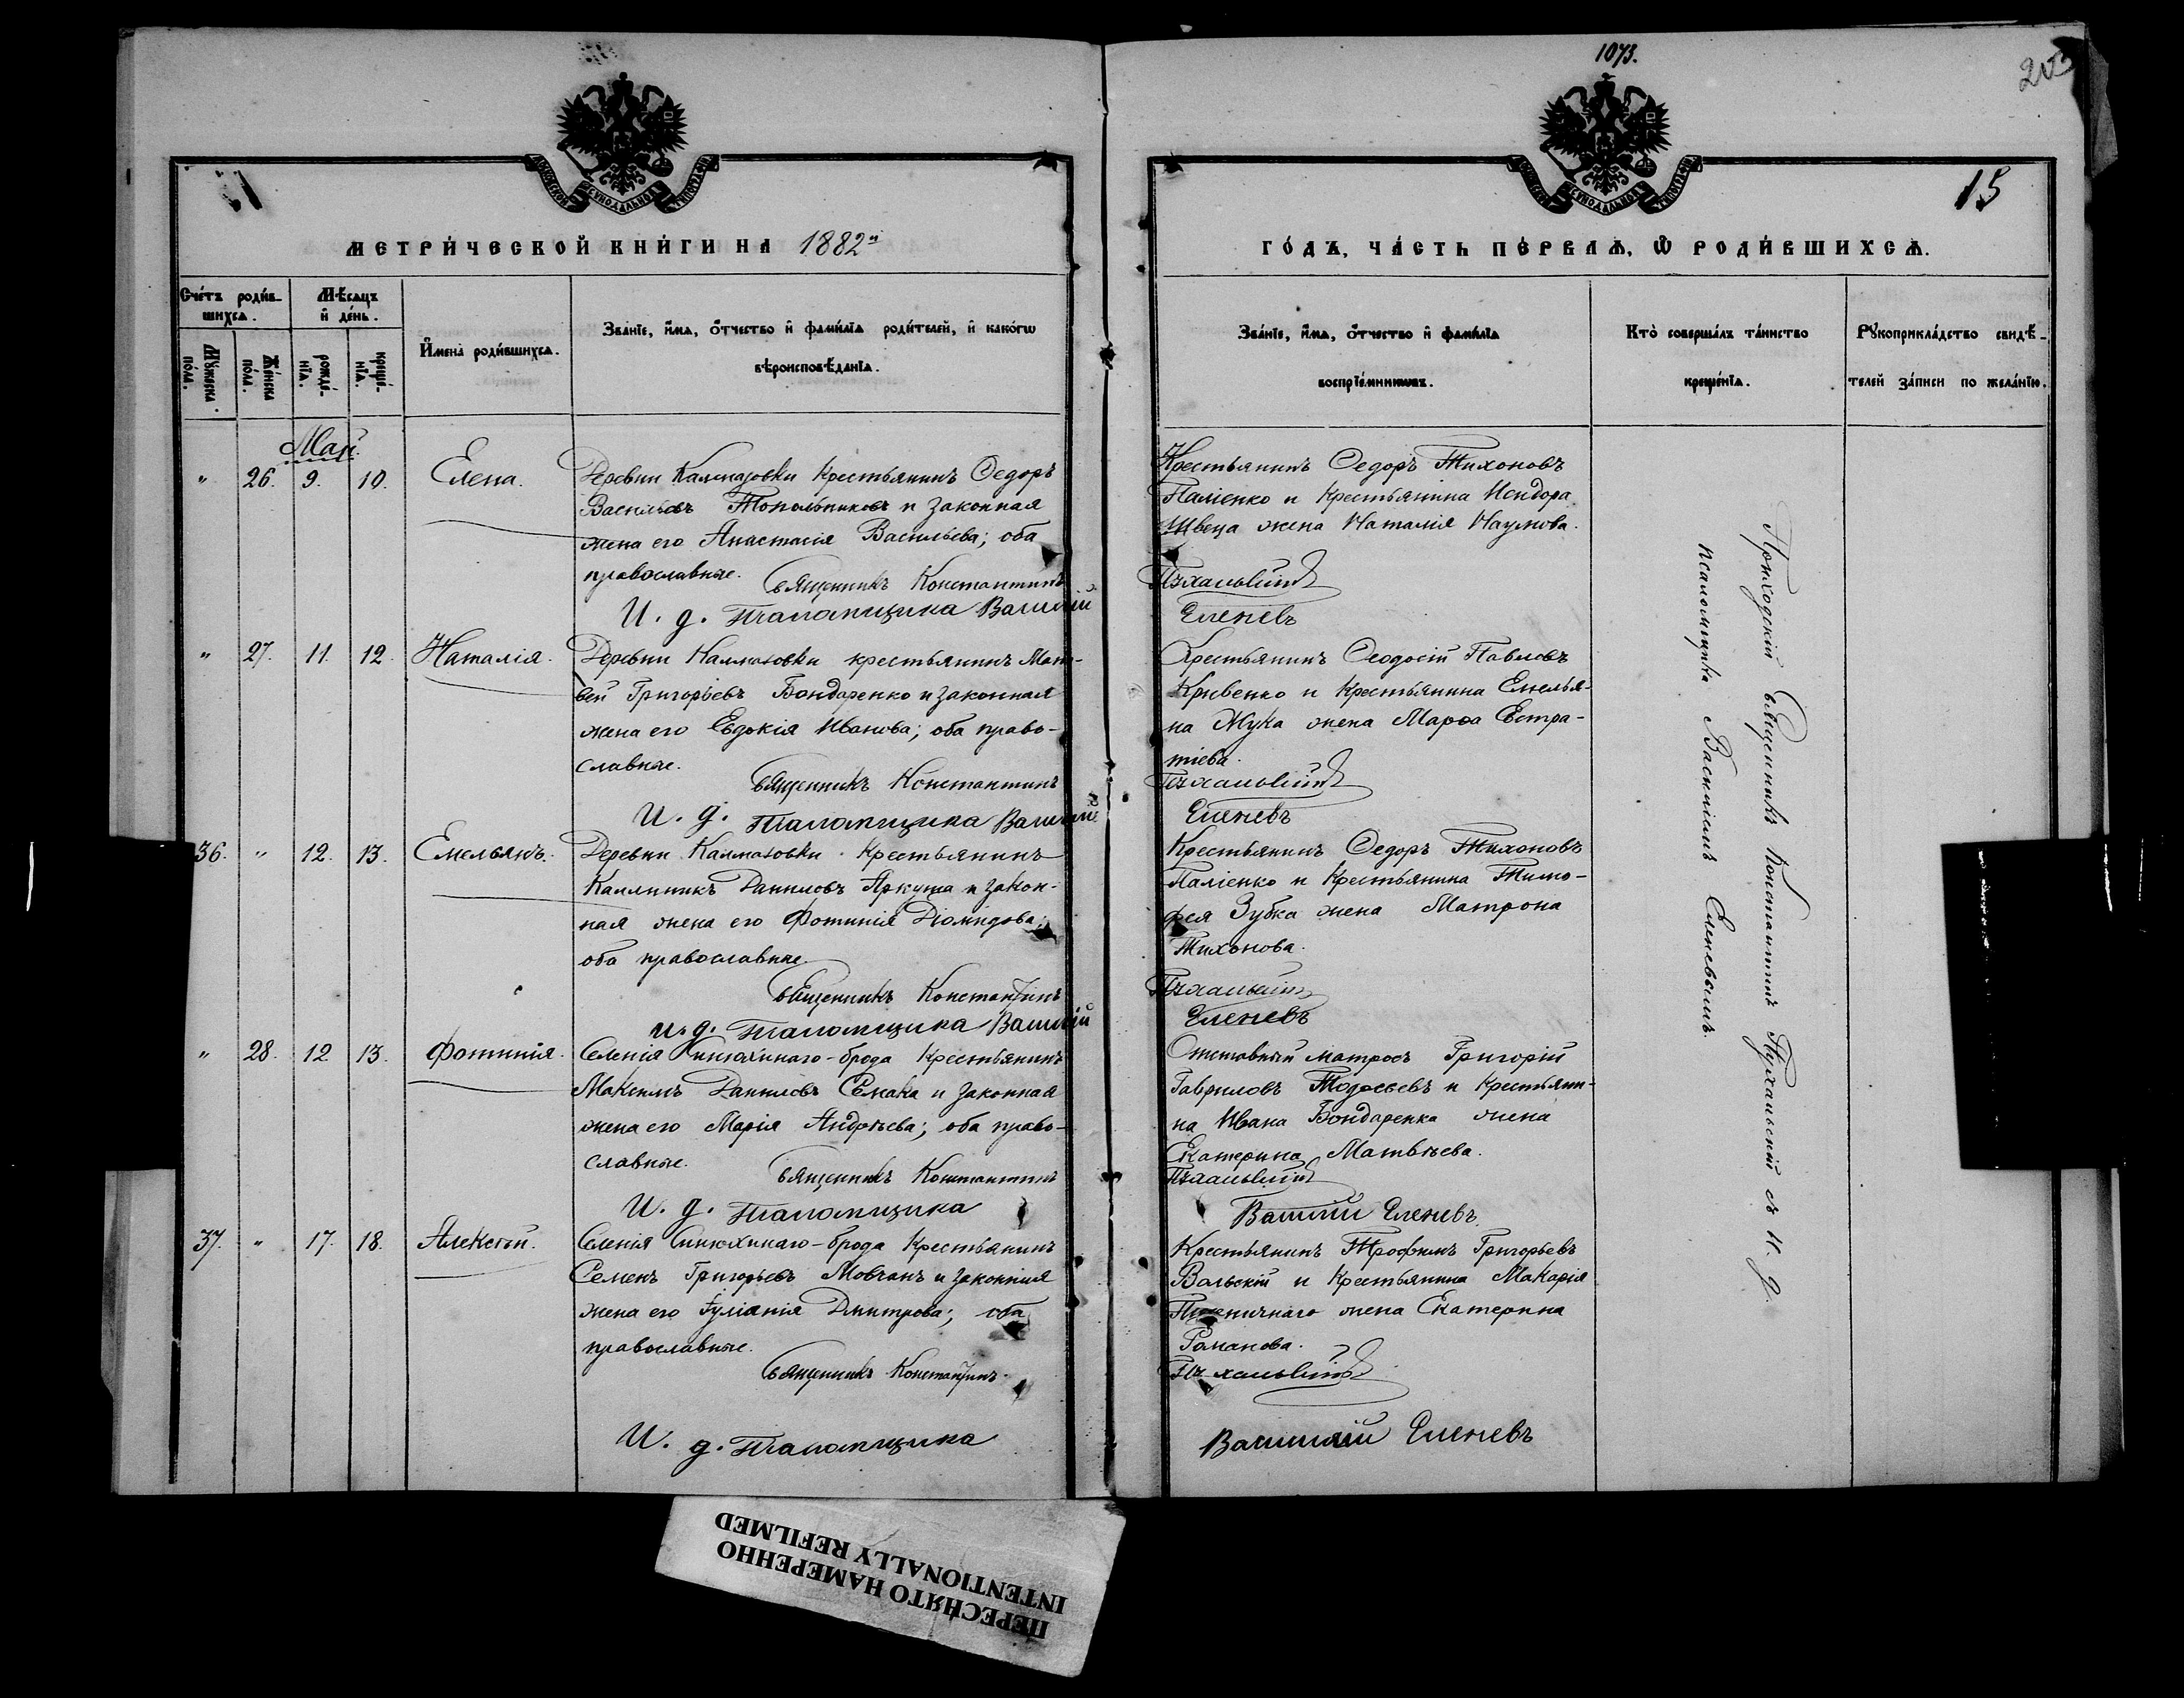 1073.
15
МЕТРИ́ЧЕСКОЙ КНИ́ГИ НА 1882й
ГО́ДЪ, ЧА́СТЬ ПЕ́РВАѦ, Ѡ҆ РОДИ́ВШИХСѦ.
Сче́тъ роди́в-
шихсѧ.
Мѣ́сѧцъ
и҆ де́нь.
И҆мена̀ роди́вшихсѧ.
Зва́нїе, и҆́мѧ, ѻ҆́тчество и҆ фами́лїѧ роди́телей, и҆ како́гѡ
вѣроисповѣ́данїѧ.
Мꙋ́жеска
по́ла.
Же́нска
по́ла.
рожде́-
нїѧ.
креще́-
нїѧ.
Зва́нїе, и҆́мѧ, ѻ҆́тчество и҆ фами́лїѧ
воспрїе́мникѡвъ.
Кто̀ соверша́лъ та́инство
креще́нїѧ.
Рꙋкоприкла́дство свидѣ́-
телей за́писи по жела́нїю.
Май.
" 26. 9. 10. Елена.
Деревни Калмазовки Крестьянинъ Ѳедоръ
Васильевъ Топольниковъ и законная
жена его Анастасія Васильева; оба
православные.
Священникъ Константинъ
И. д. Псаломщика Василій
Крестьянинъ Ѳедоръ Тихоновъ
Паліенко и Крестьянина Исидора
Швеца жена Наталія Наумова.
Пухальскій
Еленевъ
" 27. 11. 12. Наталія.
Деревни Калмазовки крестьянинъ Мат-
вей Григорьевъ Бондаренко и законная
жена его Евдокія Иванова; оба право-
славные.
Священникъ Константинъ
И. д. Псаломщика Василій
Крестьянинъ Ѳеодосій Павловъ
Кривенко и Крестьянина Емелья-
на Жука жена Марѳа Евстра-
тіева.
Пухальскій
Еленевъ
36. " 12. 13. Емельянъ.
Деревни Калмазовки Крестьянинъ
Каллиникъ Даниловъ Яркуша и закон-
ная жена его Фотинія Діомидова;
оба православные.
Священникъ Константинъ
И. д. Псаломщика Василій
Крестьянинъ Ѳедоръ Тихоновъ
Паліенко и Крестьянина Тимо-
фея Зубка жена Матрона
Тихонова.
Пухальскій
Еленевъ
" 28. 12 13. Фотинія.
Селенія Синюхинаго-брода Крестьянинъ
Максимъ Даниловъ Сѣмака и законная
жена его Марія Андрѣева; оба право-
славные.
Священникъ Константинъ
И. д. Псаломщика
Отставный матросъ Григорій
Гавриловъ Тодосьевъ и Крестьяни-
на Ивана Бондаренка жена
Екатерина Матвѣева.
Пухальскій
Василій Еленевъ
37. " 17. 18. Алексѣй.
Селенія Синюхинаго-брода Крестьянинъ
Семенъ Григорьевъ Мовчанъ и законная
жена его Іуліанія Дмитрова; оба
православные.
Священникъ Константинъ
И. д. Псаломщика
Крестьянинъ Трофимъ Григорьевъ
Вольскій и Крестьянина Макарія
Пшеничнаго жена Екатерина
Романова.
Пухальскій
Василій Еленевъ
Приходскій Священникъ Константинъ Пухальскій съ И. д.
псаломщика Василіемъ Еленевымъ.
ПЕРЕСНЯТО НАМЕРЕННО
INTENTIONALLY REFILMED